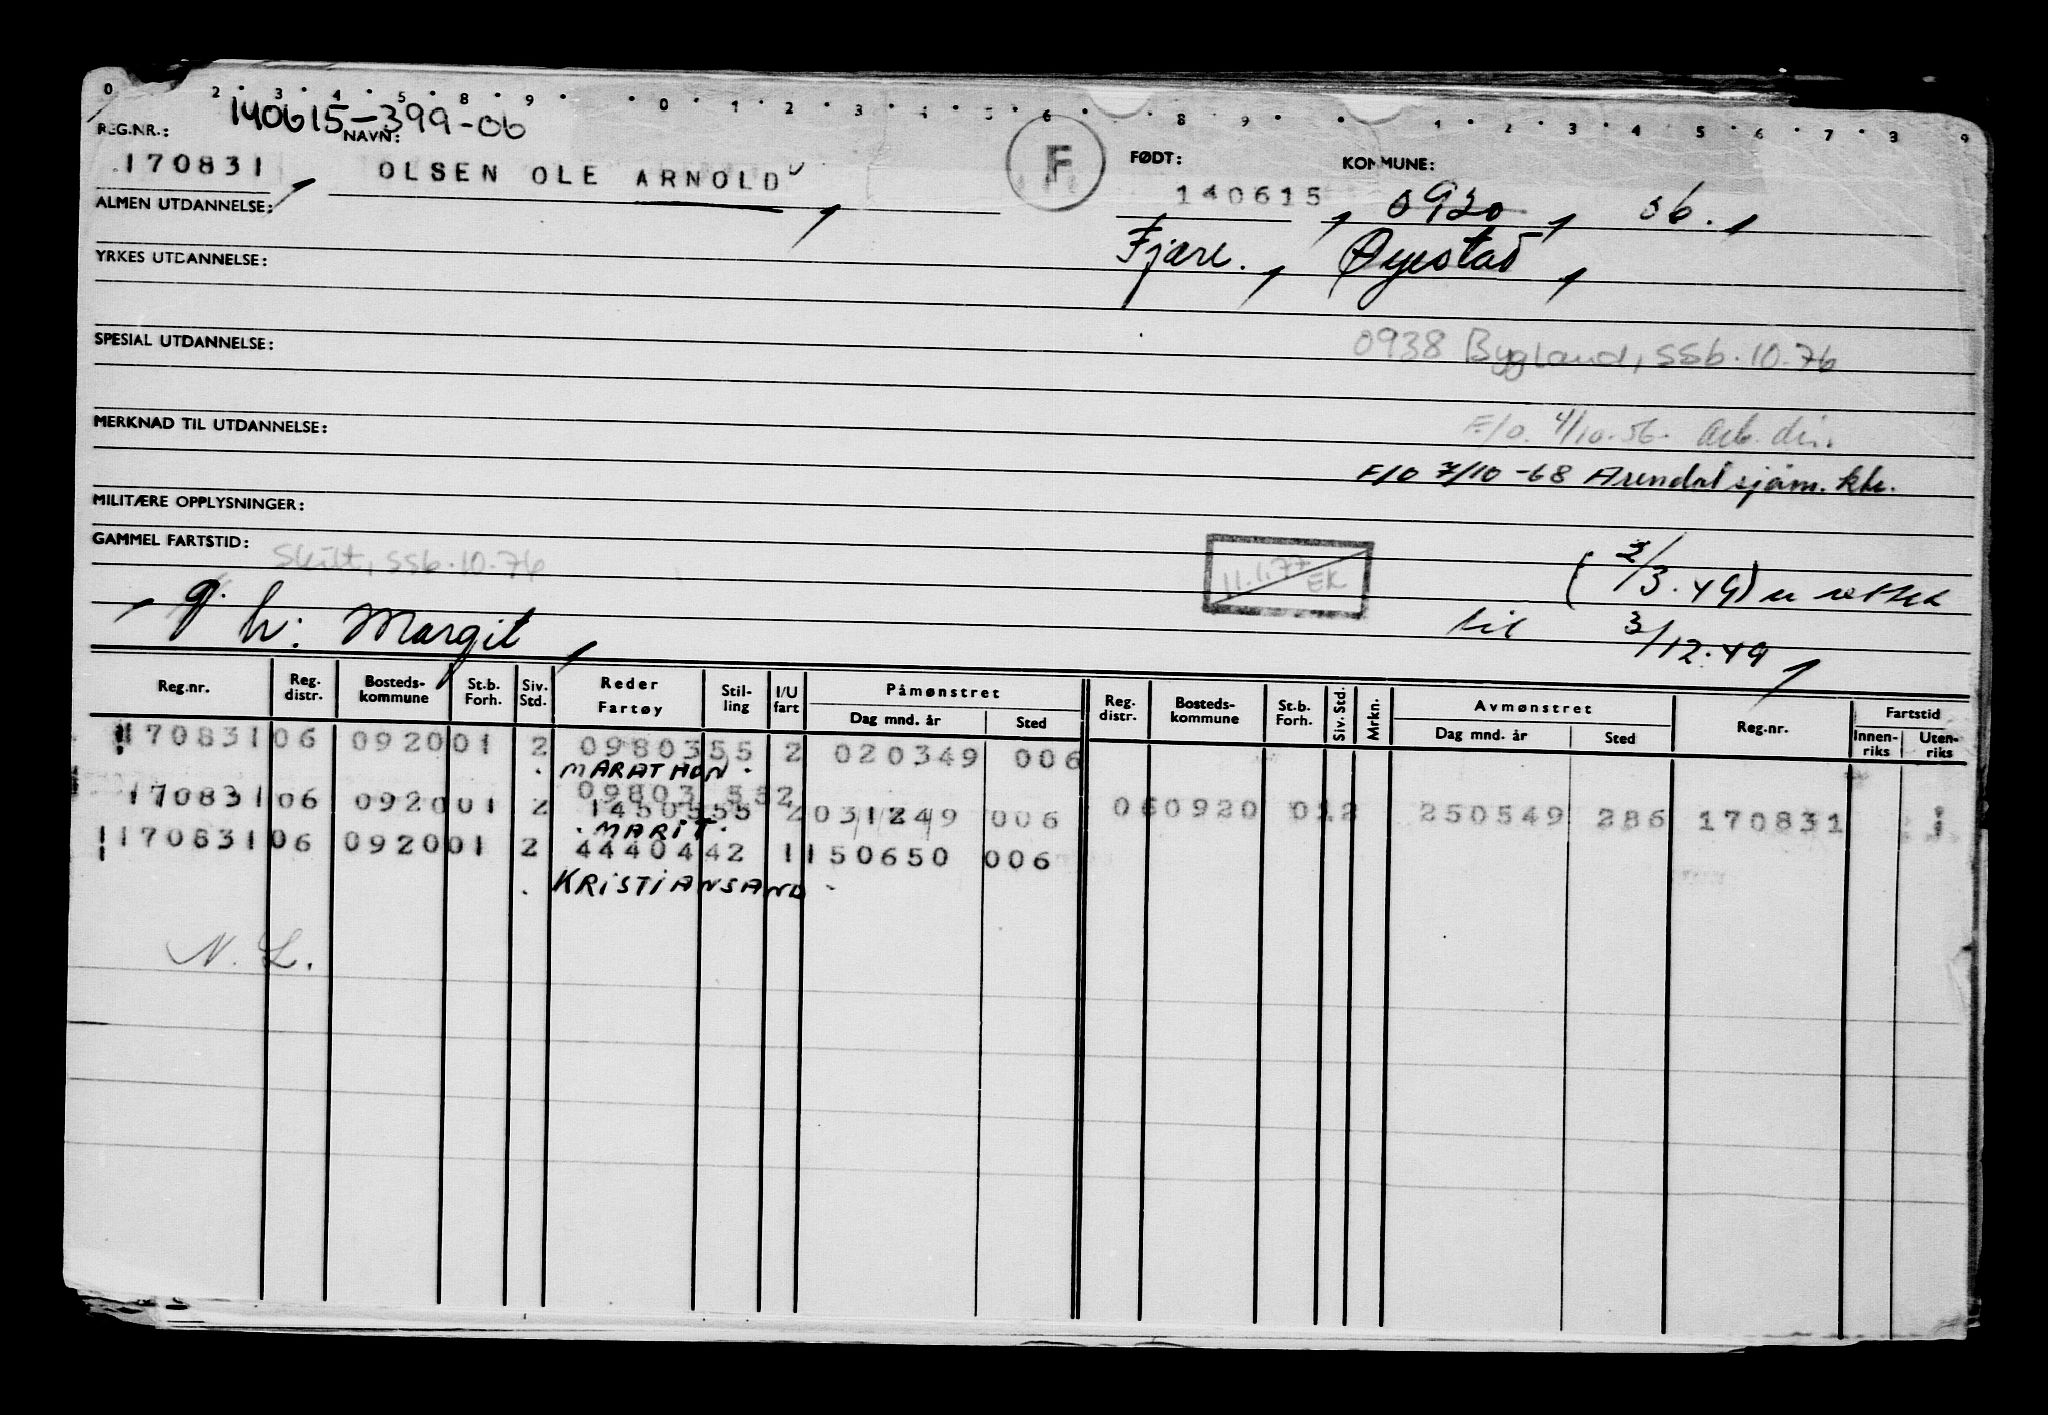 0 2 3 4 5 8 9 0 1 2 3 4 5 6 8 9 1 2 3 4 5 6 7 8 9
140615-399-06
REG.NR.: NAVN: F FØDT: KOMMUNE:
170831 OLSEN OLE ARNOLD 140615, 0920, 06.,
ALMEN UTDANNELSE:
Fjære., Øyestad,
YRKES UTDANNELSE:
SPESIAL UTDANNELSE: 0938 Bygland, SSb. 10.76
MERKNAD TIL UTDANNELSE: F/o. 4/10.56. Arb. dir.
F/O 7/10-68 Arendal sjøm. ktr.
MILITÆRE OPPLYSNINGER:
GAMMEL FARTSTID: Skilt, SSb. 10.76 11.1.77 EK (2/3.49) er rettet
g. h: Margit, til 3/12.49,
Reg.nr. Reg. distr. Bosteds-kommune St.b. Forh. Siv. Std. Reder Fartøy Stil-ling I/U fart Påmønstret Dag mnd. år Sted Reg. distr. Bosteds-kommune St.b. Forh. Siv. Std. Mrkn. Avmønstret Dag mnd. år Sted Reg.nr. Fartstid Innen-riks Uten-riks
170831 06 0920 01 2 09803 55 2 020349 006
. MARATHON .
09803 552
170831 06 0920 01 2 14505 55 2 031249 006 060920 012 250549 286 170831
. MARIT .
170831 06 0920 01 2 44404 42 1 150650 006
. KRISTIANSAND .
N. L.